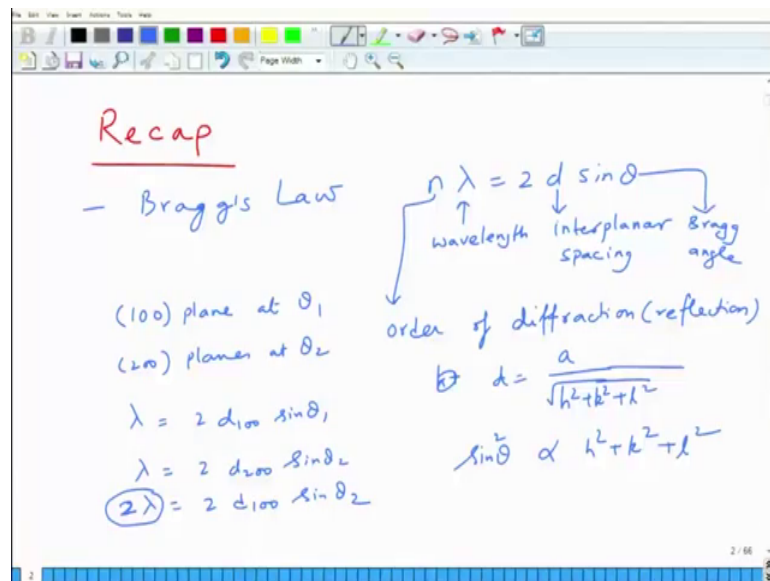 File Edit View Insert Actions Tools Help
Page Width
Recap
— Bragg's Law
n λ = 2 d sinθ
wavelength
Interplanar spacing
Bragg angle
order of diffraction (reflection)
(100) plane at θ₁
(200) planes at θ₂
λ = 2 d₁₀₀ sinθ₁
λ = 2 d₂₀₀ sinθ₂
2λ = 2 d₁₀₀ sinθ₂
d = a / √(h²+k²+l²)
sin²θ ∝ h²+k²+l²
2 / 66
2